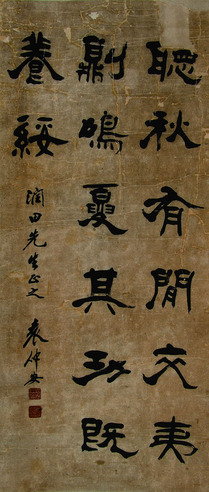 聽秋有閒交夷
鼎鳴夏其功既
養綏
潤田先生正之
袁仲安